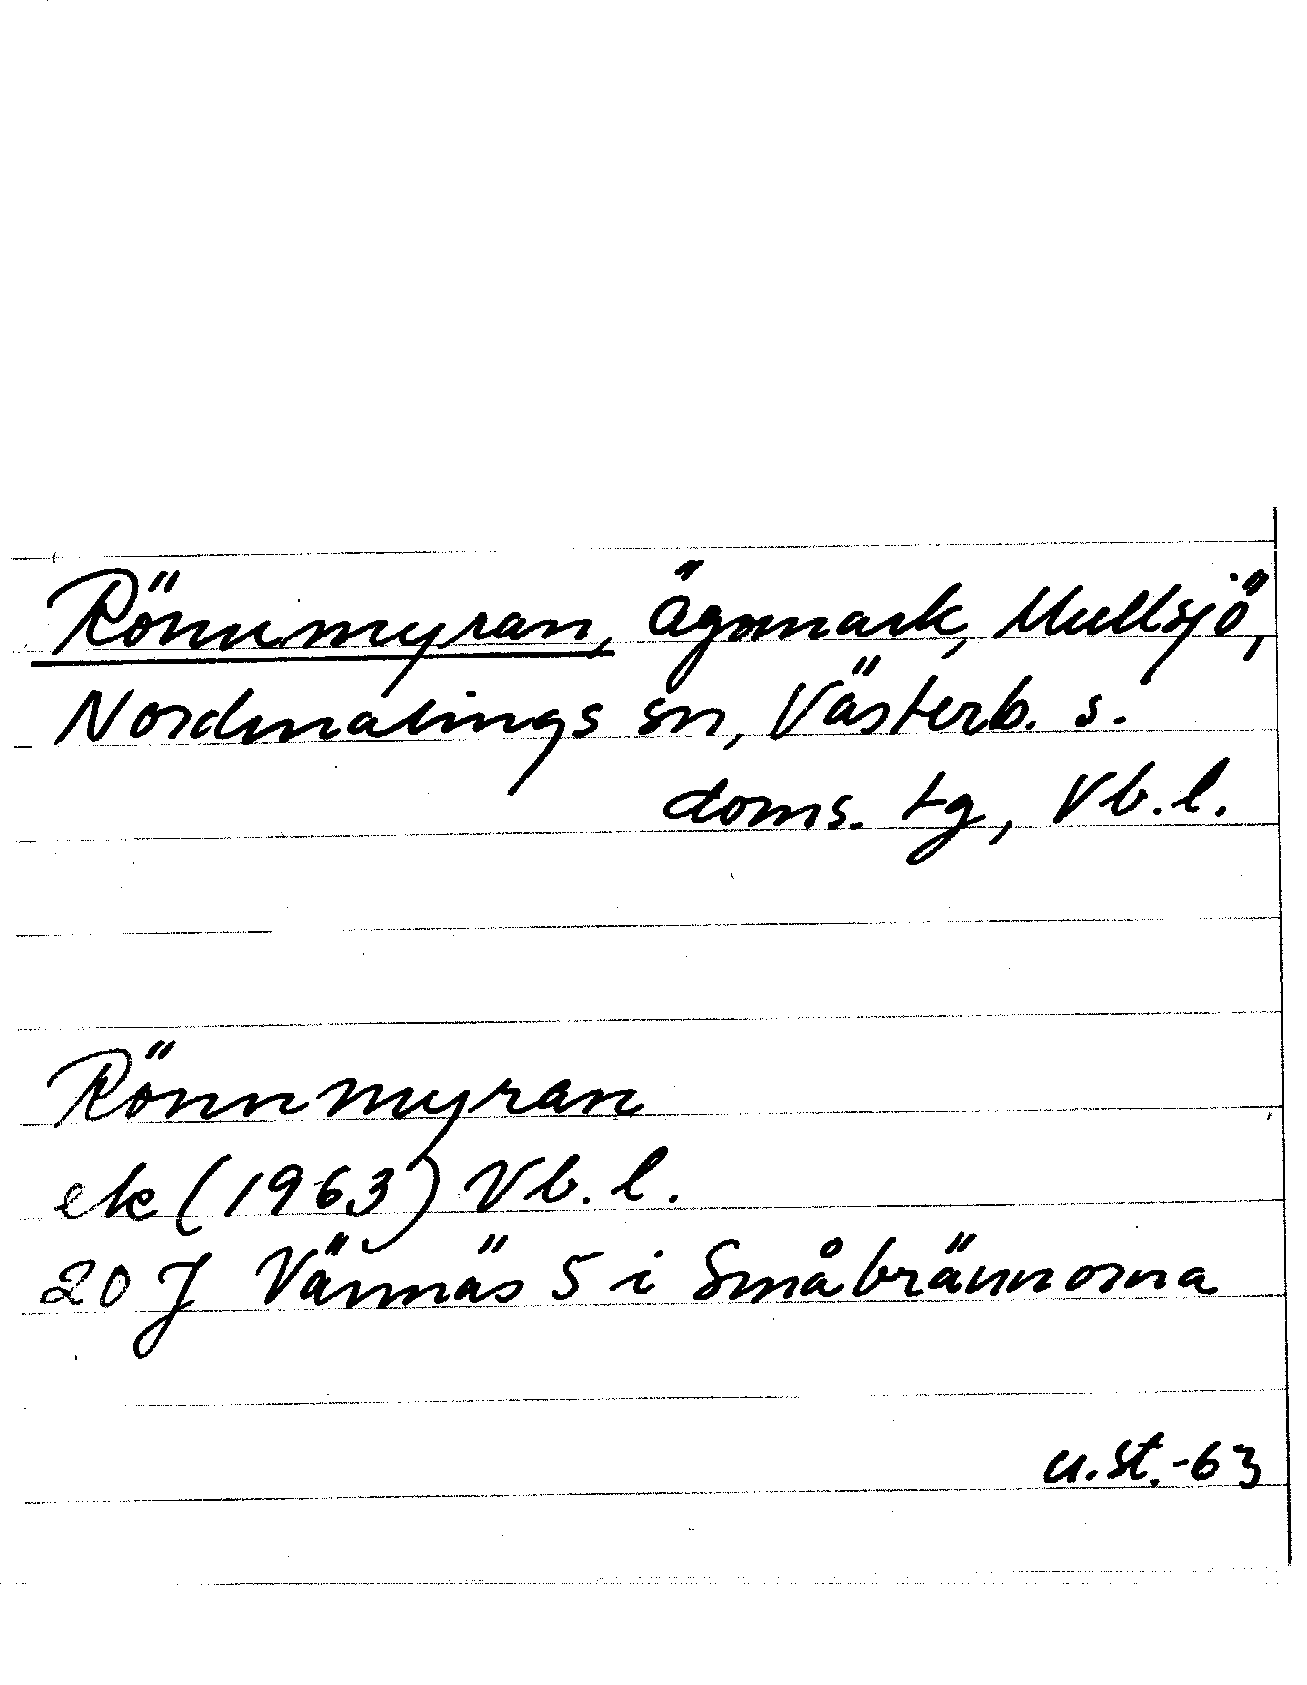 Rönnmyran, ägomark, Mullsjö,
Nordmalings sn, Västerb. s.
doms. tg, Vb. l.
Rönnmyran
ek (1963) Vb. l.
20 J Vännäs 5 i Småbrännorna
u.st.-63